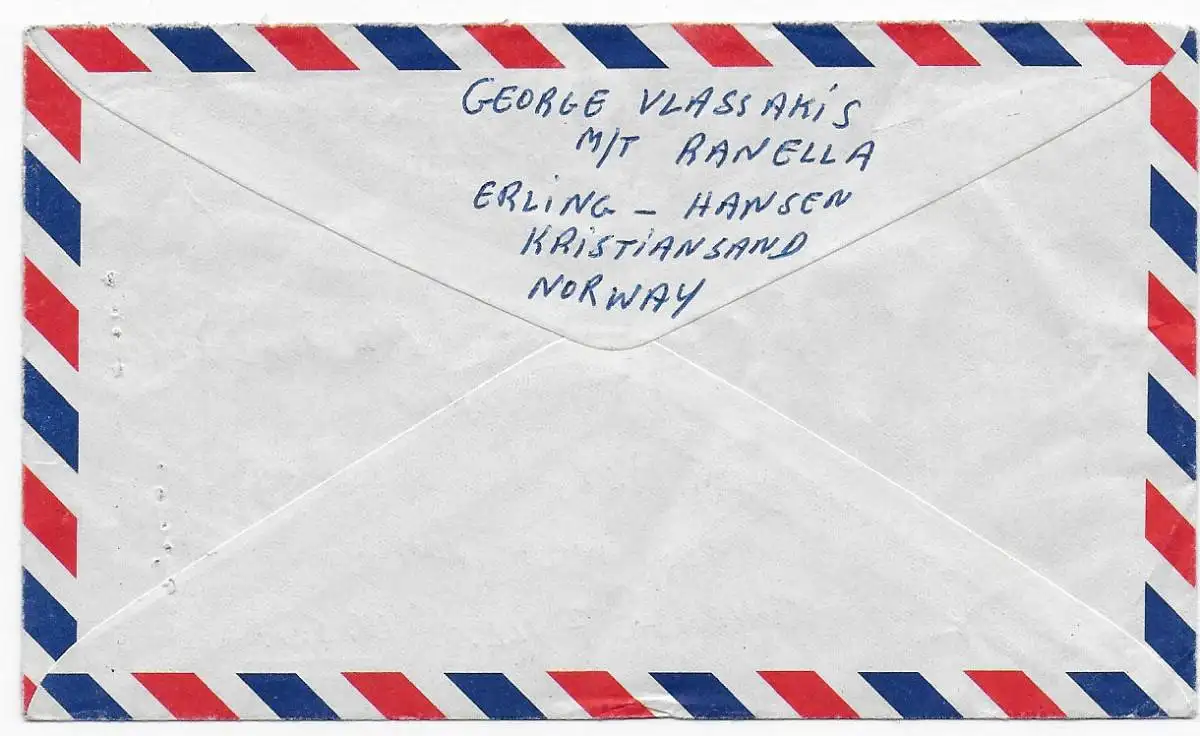 GEORGE VLASSAKiS
M/T RANELLA
ERLiNG - HANSEN
KRiSTiANSAND
NORWAY